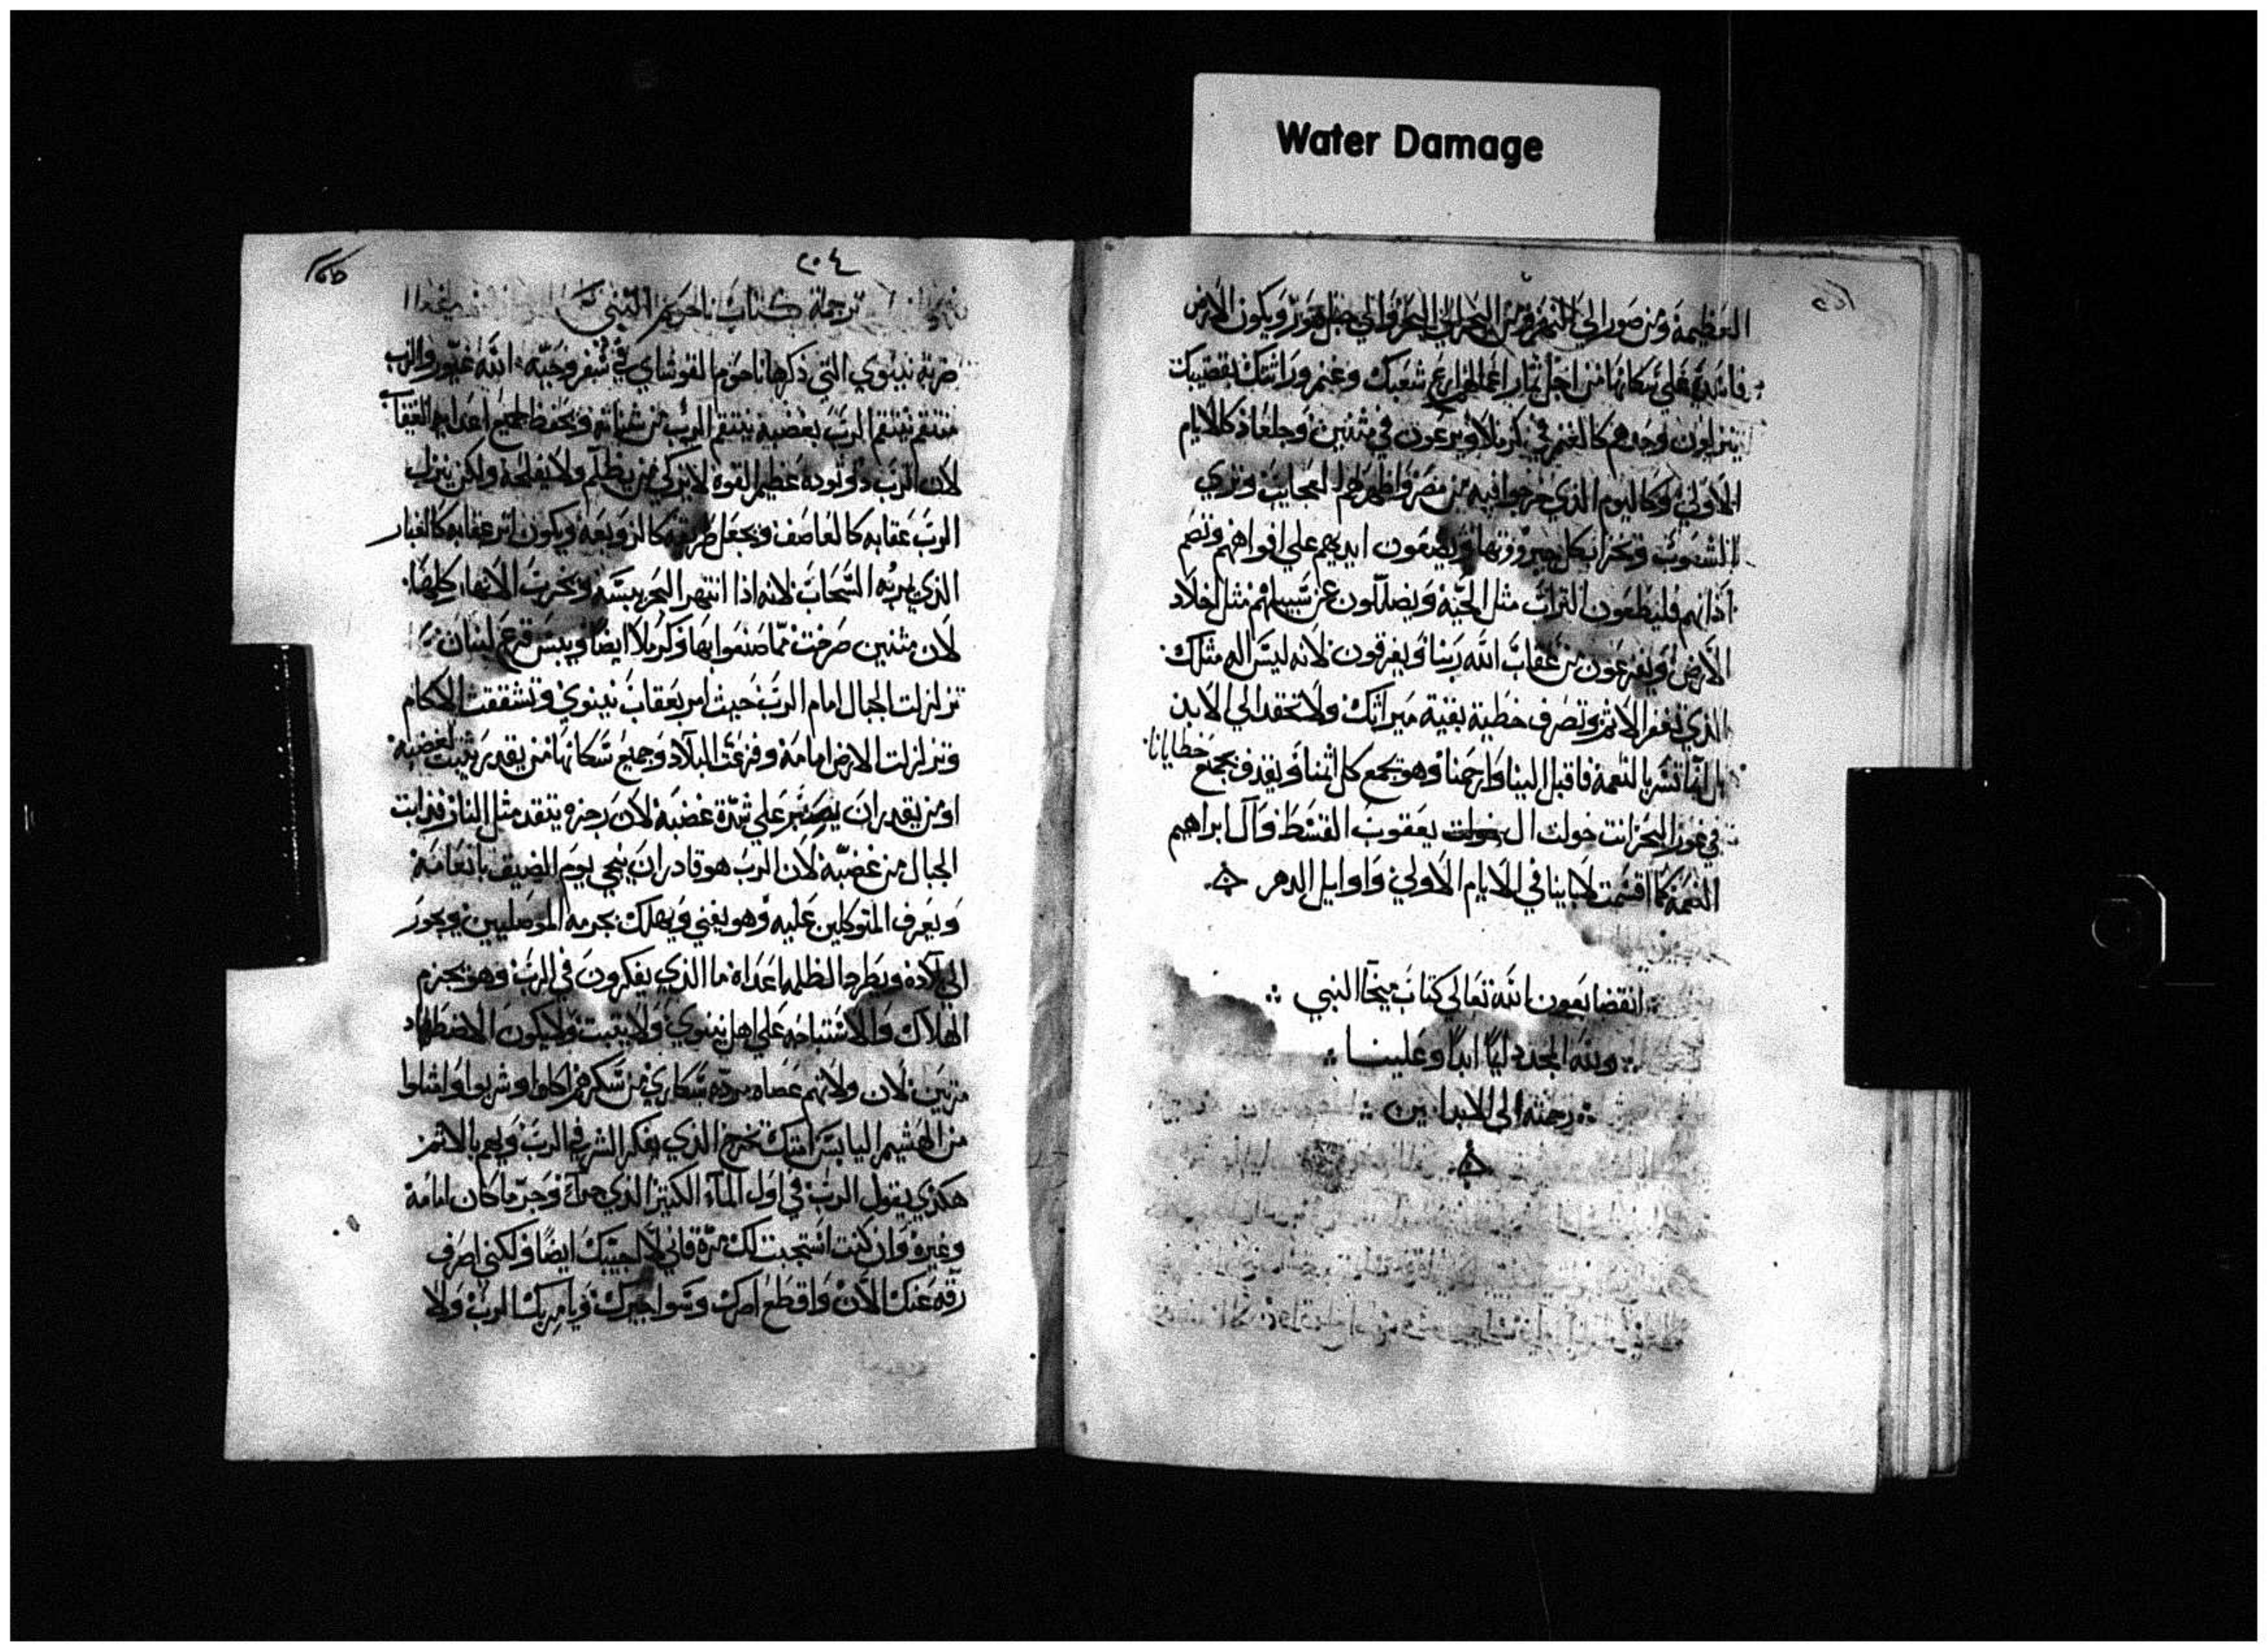 Water Damage
العظيمة ومن صور الى النهر ومن البحر الى البحر والى جبل هور ويكون الارض
فاسدة على سكانها من اجل ثمار اعمالهم ارع شعبك وغنم وراثتك بقضيبك
ينزلون وحدهم كالغنم في كرملا ويرعون في مثنين وجلعاذ كالايام
الاولى وكاليوم الذي خرجوا فيه من مصر واظهر لهم العجايب وترى
الشعوب وتخزا بكل جبروتها ويضعون ايديهم على افواههم وتصم
اذانهم فليطعون التراب مثل الحية ويضلون عن سبيلهم مثل اخلاد
الارض ويفزعون من عقاب الله ربنا ويفرقون لانه ليس اله مثلك
الذي تغفر الاثم وتصرف خطية بقية ميراثك ولا تحقد الى الابد
تسر بالنعمة فاقبل الينا وارحمنا وهو يجمع كل اثمنا ويقذف بجمع خطايانا
في غور البحر انت خولت ال يعقوب القسط وآل ابراهيم
النعمة كما اقسمت لاباينا في الايام الاولى واوايل الدهر
انقضا بعون الله تعالى كتاب ميخا النبي
ولله المجد دايما ابدا وعلينا
رحمته الى الابدين
٢٠٤
ترجمة كتاب ناحوم النبي
ضربة نينوي التي ذكرها ناحوم القوشاي في سفر وحيه الله غيور والرب
منتقم ينتقم الرب بغضبه ينتقم الرب من شناته ويحفظ لجميع اعدايه
لان الرب ذو تودة عظيم القوة لا يزكي من يظلم ولا يفلحه ولكن ينزل
الرب عقابه كالعاصف ويجعل طريقه كالزوبعة ويكون اثر عقابه كالغبار
الذي يريه السحاب لانه اذا انتهر البحر يبسه ويخرب الانهار كلها
لان مثنين صرخت مما صنعوا بها وكرملا ايضا ويبس فرع لبنان
تزلزلت الجبال امام الرب حيث امر بعقاب نينوي وتشققت الاكام
وتزلزلت الارض امامه وفزعت البلاد وجميع سكانها من يقدر يثبت لغضبه
او من يقدر ان يصبر على شدة غضبه لان رجزه يتقد مثل النار فذابت
الجبال من غضبه لان الرب هو قادر ان ينجي يوم الضيق بانعامه
ويعرف المتوكلين عليه وهو يفني ويهلك بجرمه الموصليين ويجوز
الى بلاده ويطرد الظلمة اعداه ما الذي يفكرون في الرب وهو يجزم
الهلاك والاستباحة على اهل نينوي ولا يثبت ولا يكون الاضطهاد
مرتين لان ولاتهم عصاه مردة سكارى من سكرهم اكلوا وشربوا وامتلوا
من الهشيم اليابس امنك تخرج الذي يفكر الشر في الرب ويهم بالاثم
هكذي يقول الرب في اول الماء الكثير الذي جرا وجر ما كان امامه
وغيره وان كنت استجبت لك مرة فاني لا اجيبك ايضا ولكني اصرف
رقه عنك الان واقطع اصرك وسواجيرك ويامر بك الرب ولا